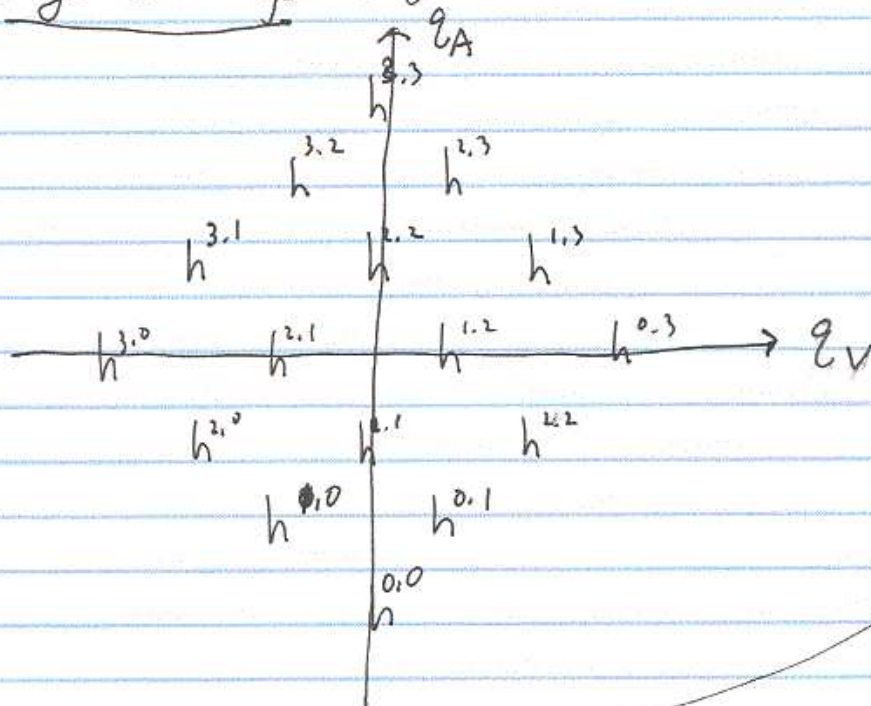 q_A
h^{3,3}
h^{3,2} h^{2,3}
h^{3,1} h^{2,2} h^{1,3}
h^{3,0} h^{2,1} h^{1,2} h^{0,3} q_V
h^{2,0} h^{1,1} h^{2,2}
h^{0,1}
h^{0,0}